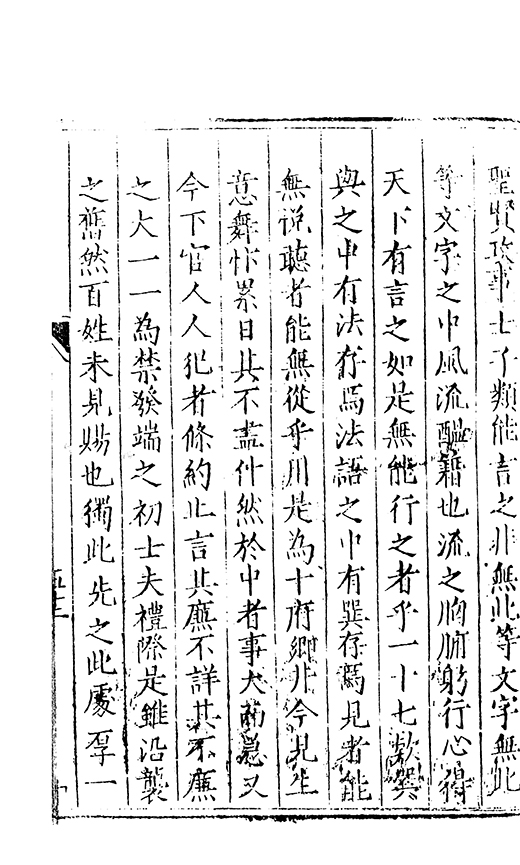 聖賢政事士子類能言之非無此等文字無此
等文字之中風流醞籍也流之胸腑躬行心得
天下有言之如是無能行之者乎一十七款巽
與之中有法存焉法語之中有巽存焉見者能
無說聽者能無從乎川是為十府鄉非今見生
意舞忭累日其不盡什然於中者事大而急又
今下官人人犯者條約止言其廉不詳其不廉
之大一一為禁發端之初士夫禮際是雖沿襲
之舊然百姓未見賜也獨此先之此處孚一
五十三